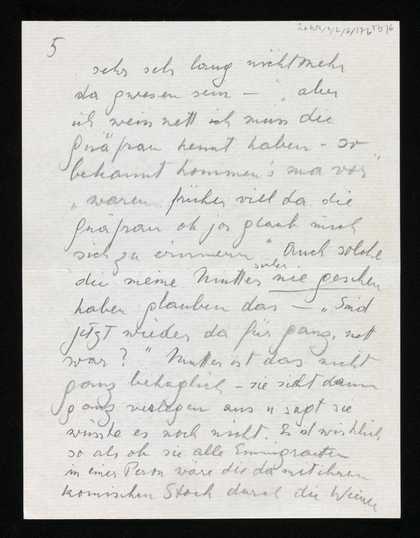 5
sehr sehr lang nicht mehr
da gwesen sein – "aber
ich weiss nett ich muss die
Gnäfrau kennt haben – so
bekannt kommen's ma vor"
"waren früher viel da die
Gnäfrau oh ja glaub mich
sich zu erinnern" Auch solche
die meine Mutter sicher nie gesehen
haben glauben das – "Sind
jetzt wieder da für ganz, nett
war?" Mutter ist das nicht
ganz behaglich – sie sieht dann
ganz verlegen aus u sagt sie
wüsste es noch nicht. Es ist wirklich
so als ob sie alle Emigranten
in einer Person wäre die da mit ihrem
komischen Stock durch die Wiener